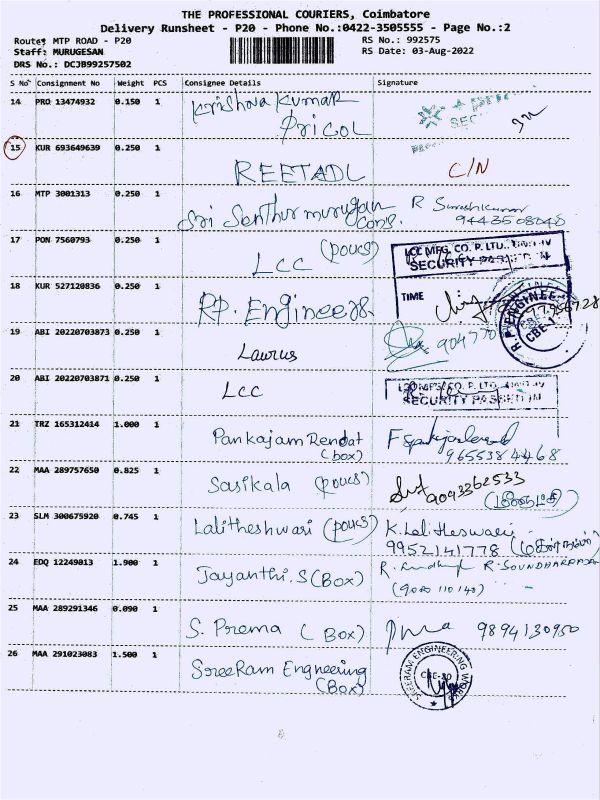 THE PROFESSIONAL COURIERS, Coimbatore
Delivery Runsheet - P20 - Phone No.:0422-3505555 - Page No.:2
Route: MTP ROAD - P20
RS No.: 992575
Staff: MURUGESAN
RS Date: 03-Aug-2022
DRS No.: DCJB99257502
S No Consignment No Weight PCS Consignee Details Signature
14 PRO 13474932 0.150 1 Krishna Kumar
Pricol
15 KUR 693649639 0.250 1 REETADL C/N
16 MTP 3001313 0.250 1 Sri Senthur murugan Cons. R Sureshkumar
9443508048
17 PON 7560793 0.250 1 LCC (poucs) LCC MFG. CO. P. LTD.
SECURITY PASSED IN
TIME
18 KUR 527120836 0.250 1 RP. Engineers. R.P ENGINEE
CBE-
19 ABI 20220703873 0.250 1 Laurus
20 ABI 20220703871 0.250 1 LCC
SECURITY PASSED IN
21 TRZ 165312414 1.000 1 Pankajam Rendat
(box) 9655384468
22 MAA 289757650 0.825 1 Sasikala (poucs) 9043362533
23 SLM 300675920 0.745 1 Lalitheshwari (poucs) K. Lalitheswari
9952141778
24 EDQ 12249013 1.900 1 Jayanthi. S (Box) R. SOUNDHARRAJAN
(9080 110 140)
25 MAA 289291346 0.090 1 S. Prema (Box) 9894130950
26 MAA 291023083 1.500 1 SreeRam Engneering
(Box) SREERAM ENGINEERING WORKS
CBE-30